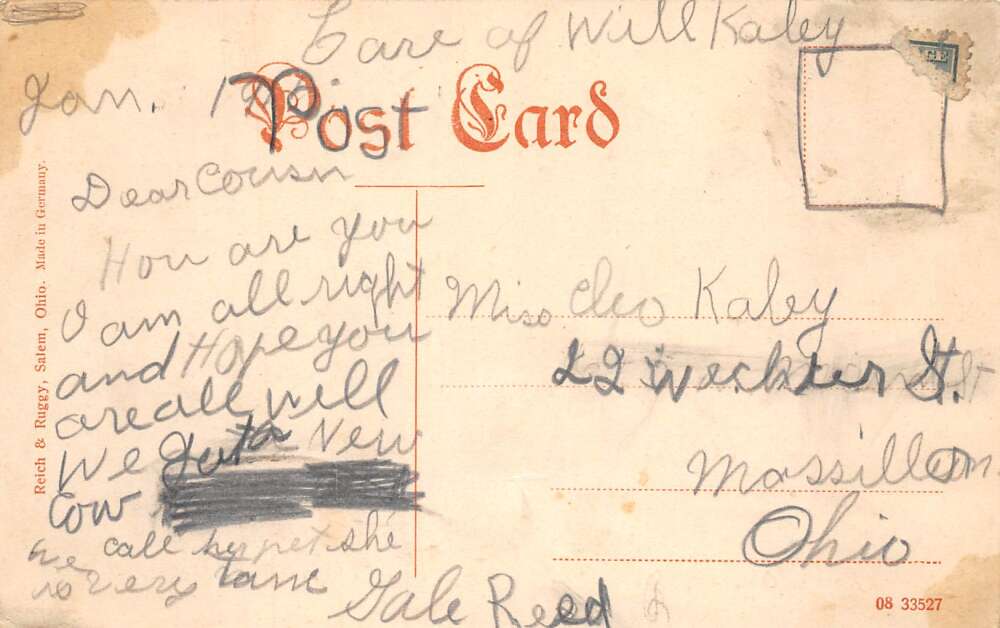 Care of Will Kaley
Jan. 1
Post Card
Dear Cousn
How are you
I am all right
and Hope you
are all will
We Got a New
Cow
we call her pet she
is very tame
Gale Reed
Miss Cleo Kaley
22 Weckter St.
Massillon
Ohio
Reich & Ruggy, Salem, Ohio. Made in Germany.
08 33527